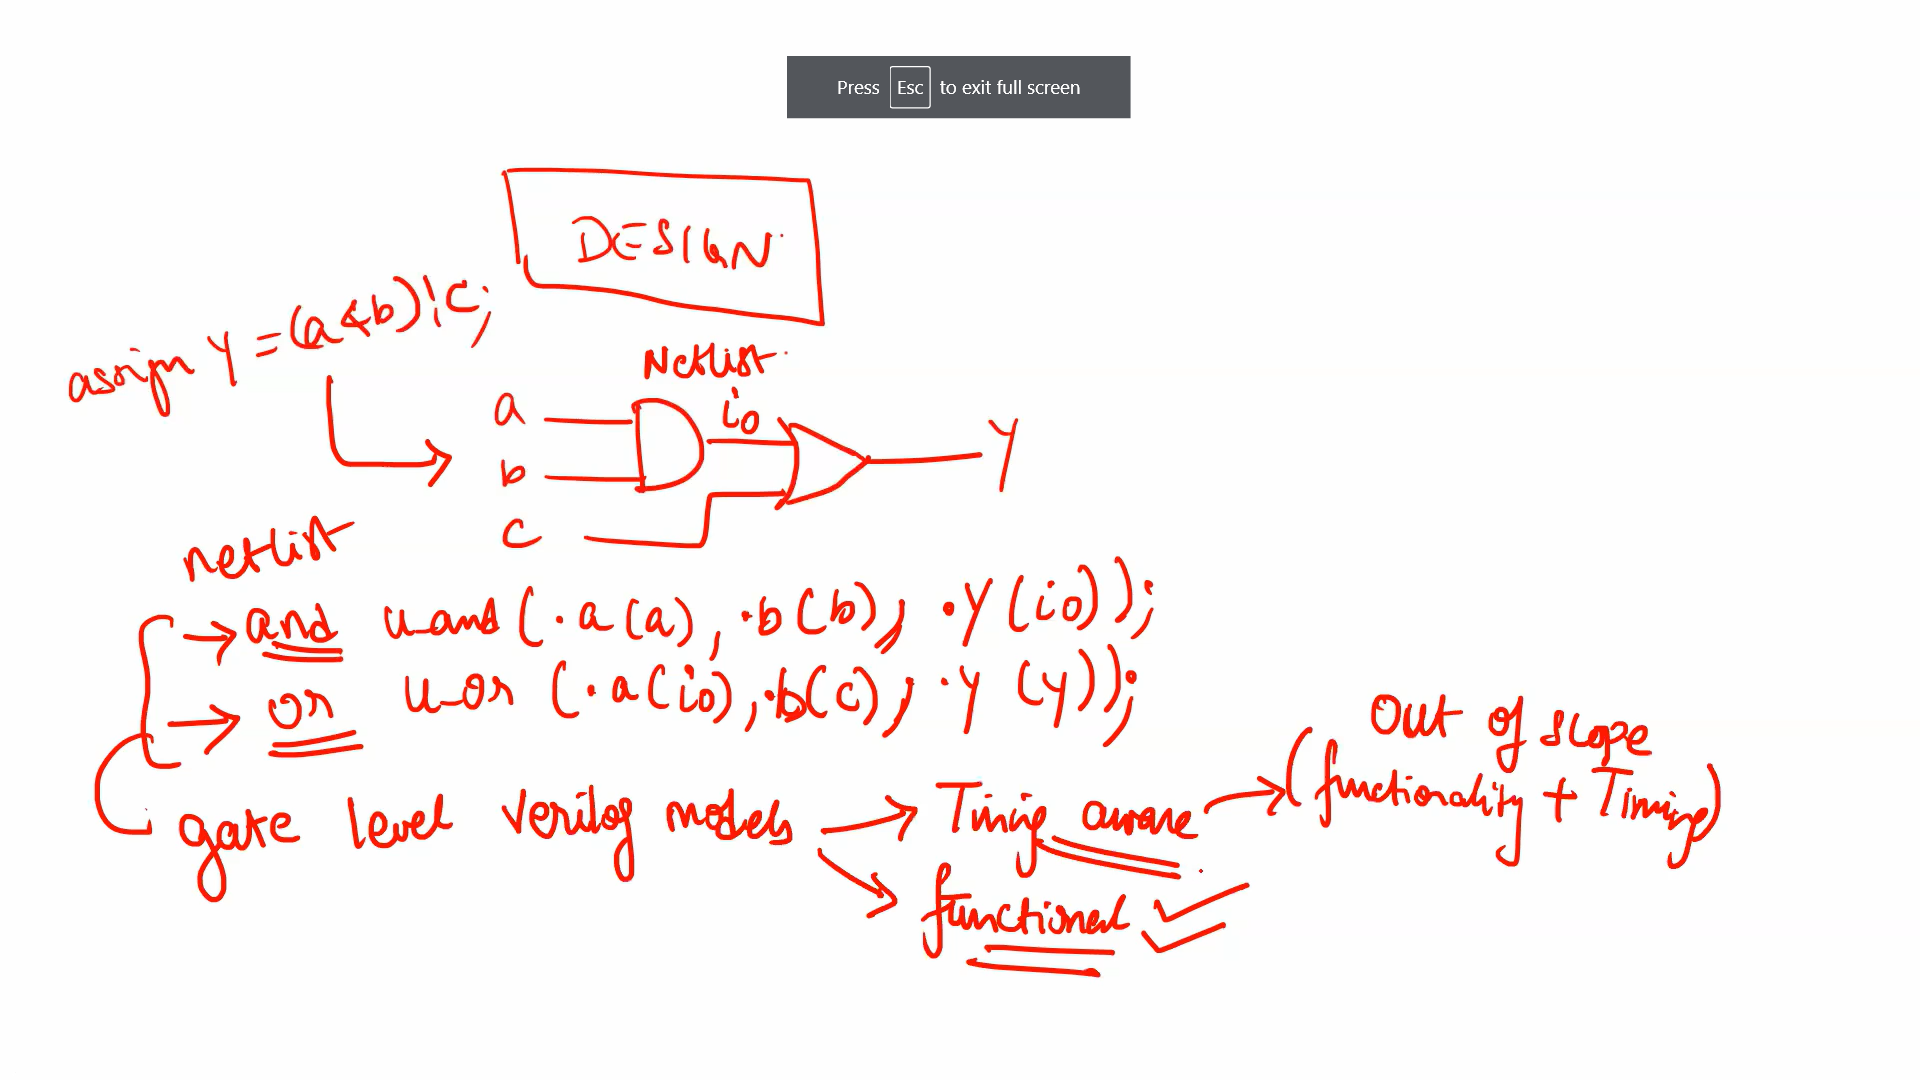 Press Esc to exit full screen
DESIGN
assign Y = (a & b) | c;
Netlist
a
i0
b
Y
c
netlist
→ and u_and (.a(a), .b(b), .Y(i0));
→ or u_or (.a(i0), .b(c), .Y(y));
Out of scope
gate level verilog models → Timing aware → (functionality + Timing)
functional ✓✓